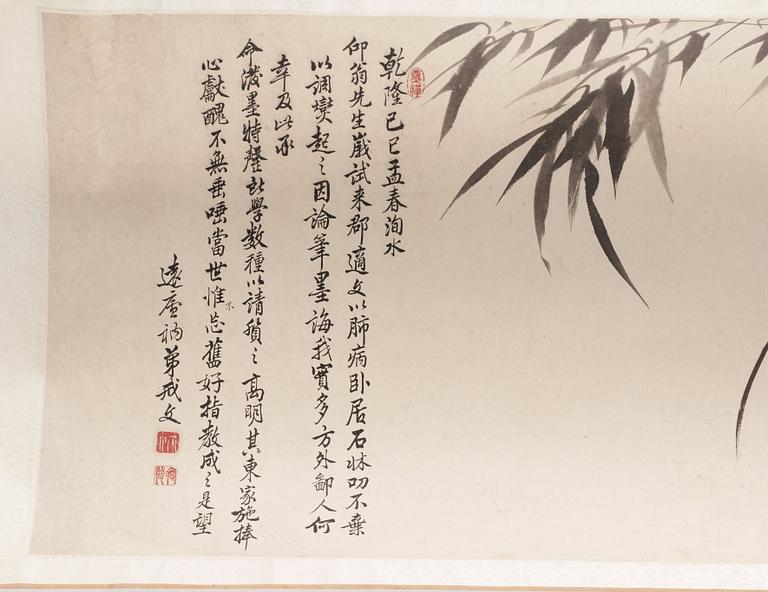 乾隆己巳孟春洵水
仰翁先生歲試来郡適文以肺病卧居石牀叨不棄
以調爕起々因論筆墨誨我實多方外鄙人何
幸及此承
命潑墨特聲所學数種以請質之高明其東家施捧
心獻醜不無垂唾當世惟不忘舊好指教成之是望
遠廬衲弟戒文